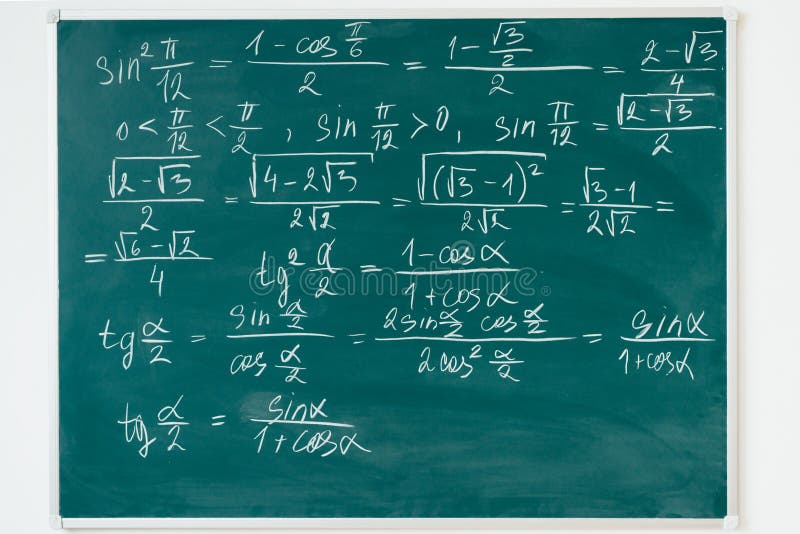 sin² π/12 = (1 - cos π/6)/2 = (1 - √3/2)/2 = (2 - √3)/4
0 < π/12 < π/2 , sin π/12 > 0, sin π/12 = √(2 - √3)/2
√(2 - √3)/2 = √(4 - 2√3)/(2√2) = √((√3 - 1)²)/(2√2) = (√3 - 1)/(2√2) =
= (√6 - √2)/4    tg² α/2 = (1 - cos α)/(1 + cos α)
tg α/2 = (sin α/2)/(cos α/2) = (2 sin α/2 cos α/2)/(2 cos² α/2) = sin α/(1 + cos α)
tg α/2 = sin α/(1 + cos α)
dreamstime.com